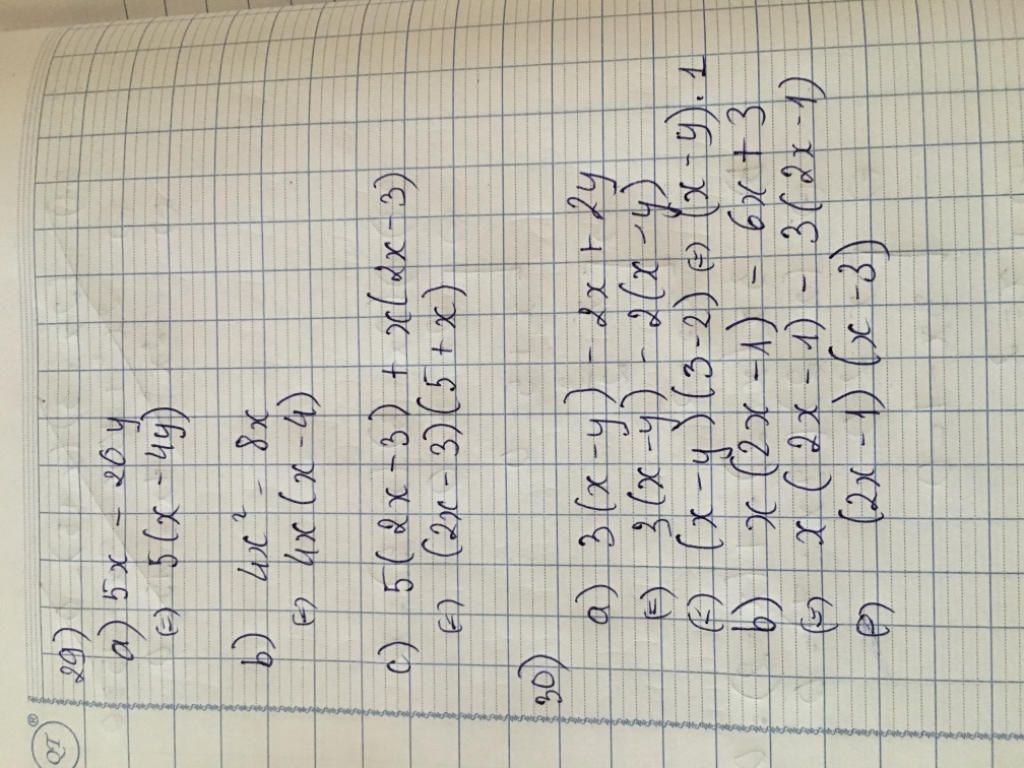 29)
a) 5x - 20y
(=) 5(x - 4y)
b) 4x² - 8x
(=) 4x(x - 4)
c) 5(2x-3) + x(2x-3)
(=) (2x-3)(5+x)
30)
a) 3(x-y) - 2x + 2y
(=) 3(x-y) - 2(x-y)
(=) (x-y)(3-2) (=) (x-y).1
b) x(2x-1) - 6x+3
(=) x(2x-1) - 3(2x-1)
(=) (2x-1)(x-3)